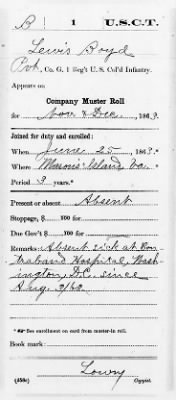 B | 1 | U.S.C.T.
Lewis Boyd
Pvt, Co. G, 1 Reg't U.S. Col'd Infantry.
Appears on
Company Muster Roll
for Nov & Dec, 1863.
Joined for duty and enrolled:
When June 25, 1863.*
Where Masons Island Va.
Period 3 years.*
Present or absent Absent
Stoppage, $ 100 for
Due Gov't $ 100 for
Remarks: Absent sick at Con
traband Hospital, Wash
ington, D.C. since
Aug. 3/63
*See enrollment on card from muster-in roll.
Book mark:
Lowry
(358c) Copyist.